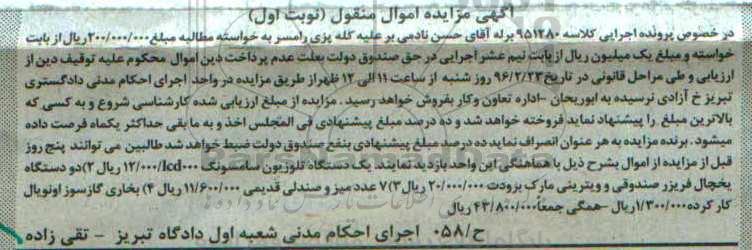 آگهی مزایده اموال منقول (نوبت اول)
در خصوص پرونده اجرایی کلاسه ۹۵۱۲۸۰ برله آقای حسن نادمی بر علیه کله پزی رامسر به خواسته مطالبه مبلغ ۲۰۰/۰۰۰/۰۰۰ ریال از بابت
خواسته و مبلغ یک میلیون ریال از بابت نیم عشر اجرایی در حق صندوق دولت بعلت عدم پرداخت دین اموال محکوم علیه توقیف دین از
ارزیابی و طی مراحل قانونی در تاریخ ۹۶/۲/۲۳ روز شنبه از ساعت ۱۱ الی ۱۲ ظهر از طریق مزایده در واحد اجرای احکام مدنی دادگستری
تبریز خ آزادی نرسیده به ابوریحان -اداره تعاون وکار بفروش خواهد رسید . مزایده از مبلغ ارزیابی شده کارشناسی شروع و به کسی که
بالاترین مبلغ را پیشنهاد نماید فروخته خواهد شد و ده درصد مبلغ پیشنهادی فی المجلس اخذ و به ما بقی حداکثر یکماه فرصت داده
میشود . برنده مزایده به هر عنوان انصراف نماید ده درصد مبلغ پیشنهادی بنفع صندوق دولت ضبط خواهد شد طالبین می توانند پنج روز
قبل از مزایده از اموال بشرح ذیل با هماهنگی این واحد بازدید نمایند. یک دستگاه تلوزیون سامسونگ lcd ۱۲/۰۰۰/۰۰۰ ریال ۲)دو دستگاه
یخچال فریزر صندوقی و ویترینی مارک یزودت ۲۰/۰۰۰/۰۰۰ ریال ۳) ۷ عدد میز و صندلی قدیمی ۱۱/۶۰۰/۰۰۰ ریال ۴) بخاری گازسوز اونویال
کار کرده ۱/۳۰۰/۰۰۰ ریال -همگی جمعاً ۴۳/۸۰۰/۰۰۰ ریال
ح/۰۵۸ اجرای احکام مدنی شعبه اول دادگاه تبریز - تقی زاده